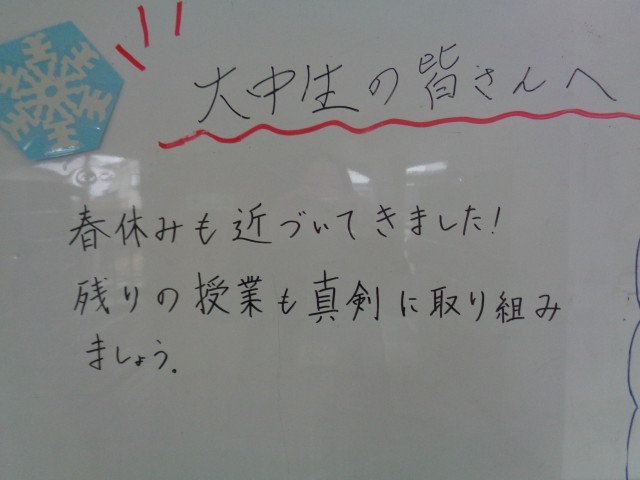 大中生の皆さんへ
春休みも近づいてきました!
残りの授業も真剣に取り組み
ましょう.